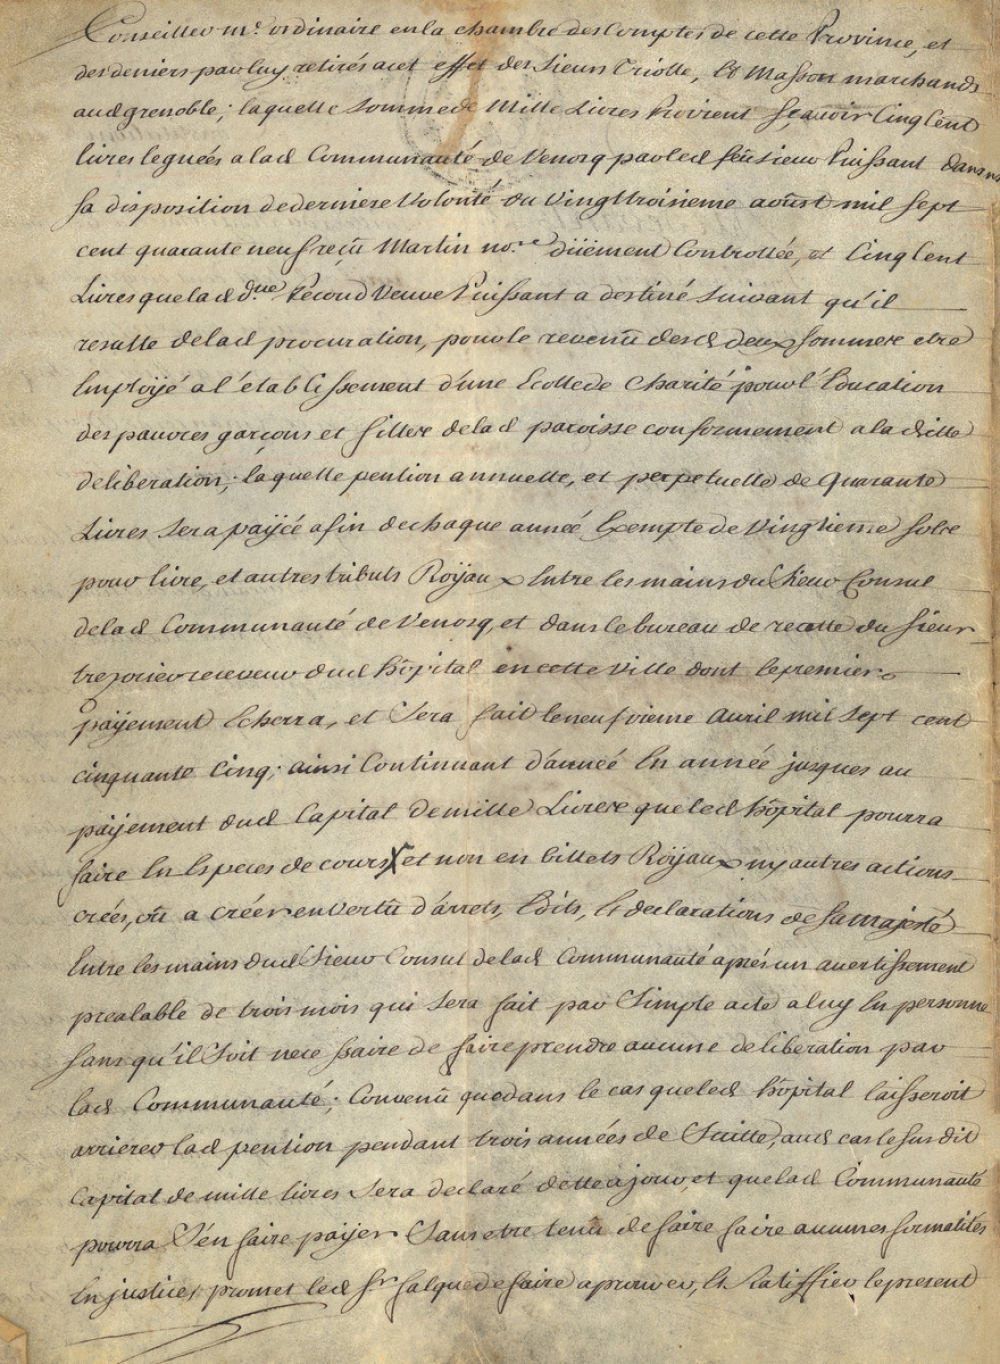 Conseiller me. ordinaire en la chambre des Comptes de cette Province, et
des deniers par luy retirés a cet effet des Sieurs Triolle, Et Masson marchands
aud grenoble; laquelle Somme de Mille Livres Provient Sçavoir Cinq Cent
livres leguées a lad Communauté de Venosq par led feu sieur Puissant dans
sa disposition de derniere Volonté du Vingt troisieme aoust mil sept
cent quarante neuf reçu Martin no.re düement Controllée, et Cinq Cent
Livres que lad d.lle Second Veuve Puissant a destiné suivant qu'il
resulte de lad procuration, pour le revenu desd deux sommes etre
Employé a l'établissement d'une Ecolle de Charité pour l'Education
des pauvres garçons et filles de lad paroisse conformement a la ditte
deliberation; laquelle pention annuelle, et perpetuelle de quarante
Livres sera payée a fin de chaque année Exempte de Vingtieme solse
pour livre, et autres tributs Roÿaux Entre les mains du Sieur Consul
de lad Communauté de Venosq, et dans le bureau de recette du sieur
tresorier receveur dud hôpital en cette ville dont le premier
payement Echerra, et Sera fait le neufvieme Avril mil sept cent
cinquante cinq; ainsi Continuant d'année En année jusques au
paÿement dud Capital de mille Livres que led hôpital pourra
faire En Especes de cours X et non en billets Roÿaux ny autres actions
créés, ou a créer en vertu d'arrets, Edits, Et declarations de sa majesté
Entre les mains dud Sieur Consul de lad Communauté aprés un avertissement
prealable de trois mois qui sera fait par Simple acte a luy En personne
sans qu'il Soit necessaire de faire prendre aucune deliberation par
lad Communauté; Convenu que dans le cas que led hôpital laisseroit
arrierer lad pention pendant trois années de Suitte, aud cas le susdit
Capital de mille livres Sera declaré dette a jour, et que lad Communauté
pourra S'en faire payer Sans etre tenu de faire faire aucunes formalités
En justice, promet led Sr. falque de faire aprouver, Et Ratiffier le present